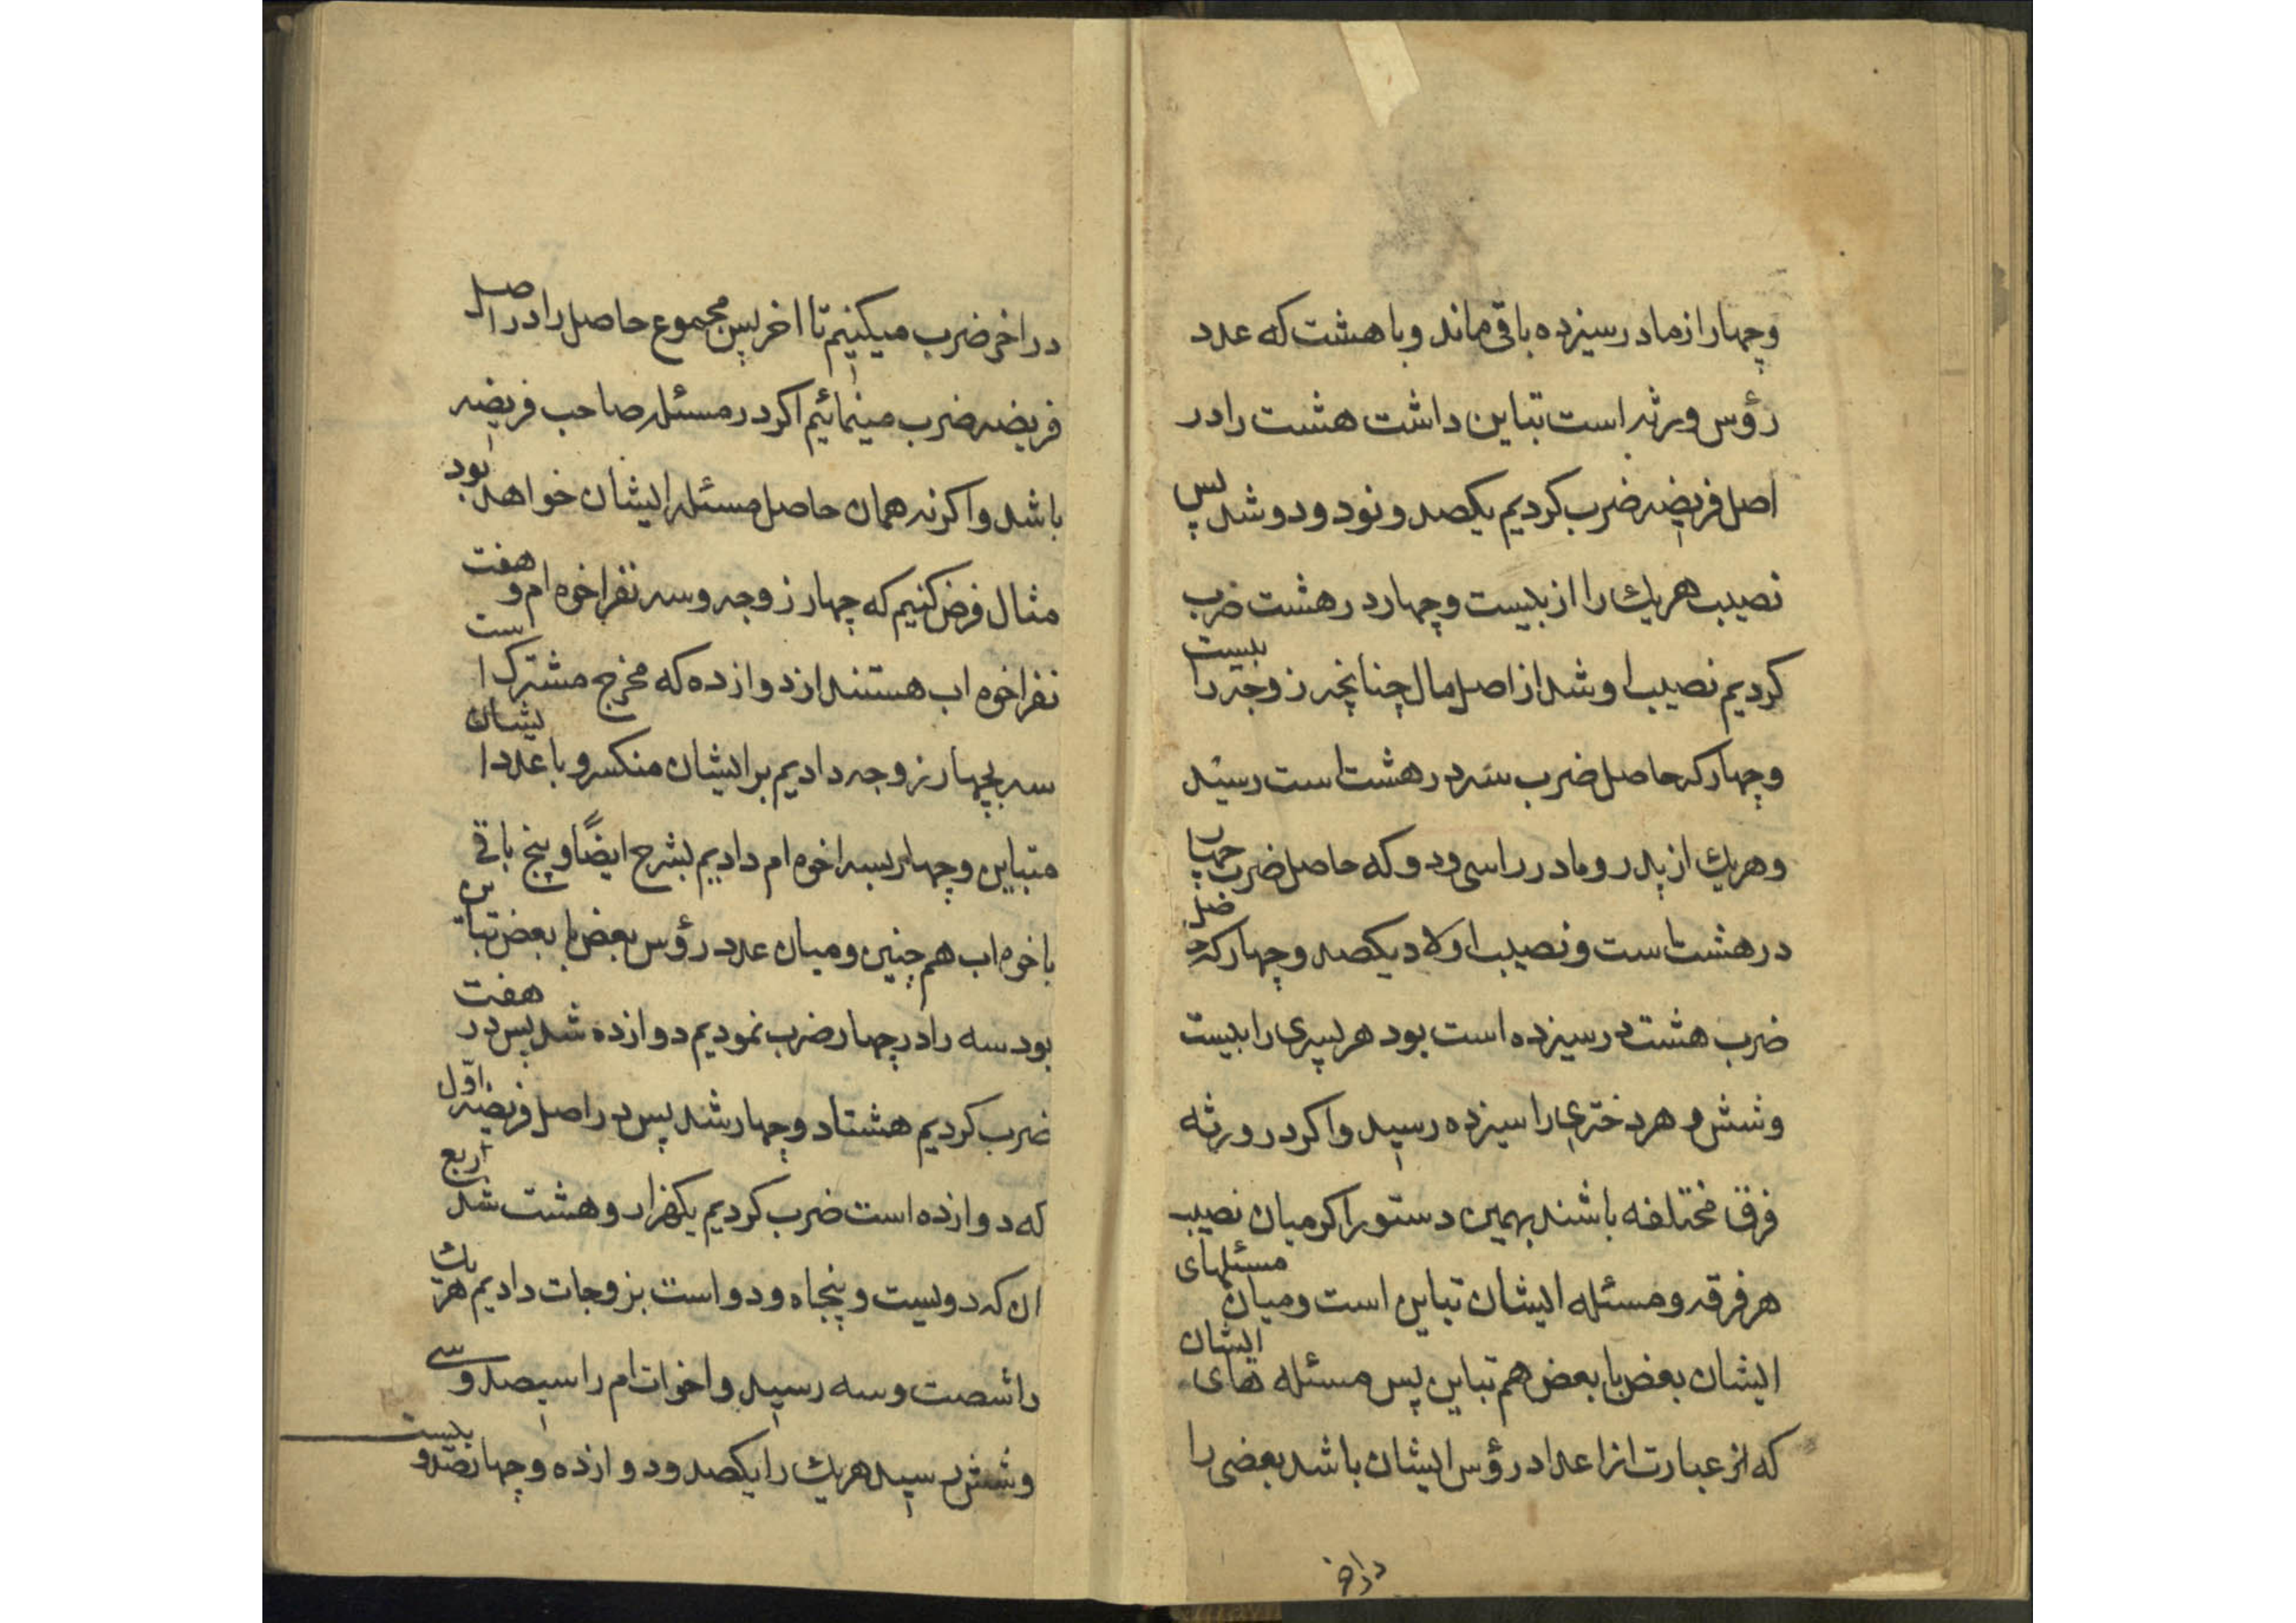 وچهار از مادر سیزده باقی ماند و با هشت که عدد
رؤس ورثه است تباین داشت هشت را در
اصل فریضه ضرب کردیم یکصد و نود و دو شد پس
نصیب هریک را از بیست وچهار در هشت ضرب
کردیم نصیب او شد از اصل مال چنانچه زوجه را بیست
وچهار که حاصل ضرب سه در هشت است رسید
وهریک از پدر و مادر را سی و دو که حاصل ضرب چهار
در هشت است و نصیب اولاد یکصد و چهار که حاصل
ضرب هشت در سیزده است بود هر پسری را بیست
وشش و هر دختری را سیزده رسید و اکر در ورثه
فرق مختلفه باشند بهمین دستور اکر میان نصیب
هر فرقه و مسئله ایشان تباین است و میان مسئلهای
ایشان بعض با بعض هم تباین پس مسئله های ایشان
که عبارت از اعداد رؤس ایشان باشد بعضی را
در اخر
در اخر ضرب میکنیم تا اخر پس مجموع حاصل را در اصل
فریضه ضرب مینمائیم اکر در مسئله صاحب فریضه
باشد و اکر نه همان حاصل مسئله ایشان خواهد بود
مثال فرض کنیم که چهار زوجه و سه نفر اخوه ام و هفت
نفر اخوه اب هستند از دوازده که مخرج مشترک است
سه بچهار زوجه دادیم بر ایشان منکسر و با عدد ایشان
متباین و چهار بسه اخوه ام دادیم بشرح ایضاً و پنج باقی
با خوه اب هم چنین و میان عدد رؤس بعض با بعض تباین
بود سه را در چهار ضرب نمودیم دوازده شد پس در هفت
ضرب کردیم هشتاد و چهار شد پس در اصل فریضه اوّل
که دوازده است ضرب کردیم یکهزار و هشت شد ربع
ان که دویست و پنجاه و دو است بزوجات دادیم هر یک
را شصت و سه رسید و اخوات ام را سیصد و سی
وشش رسید هریک را یکصد و دوازده و چهارصد و بیست